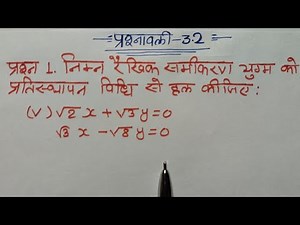 प्रश्नावली-3.2
प्रश्न 1. निम्न रैखिक समीकरण युग्म को
प्रतिस्थापन विधि से हल कीजिए:
(v) √2 x + √3 y = 0
√3 x - √8 y = 0